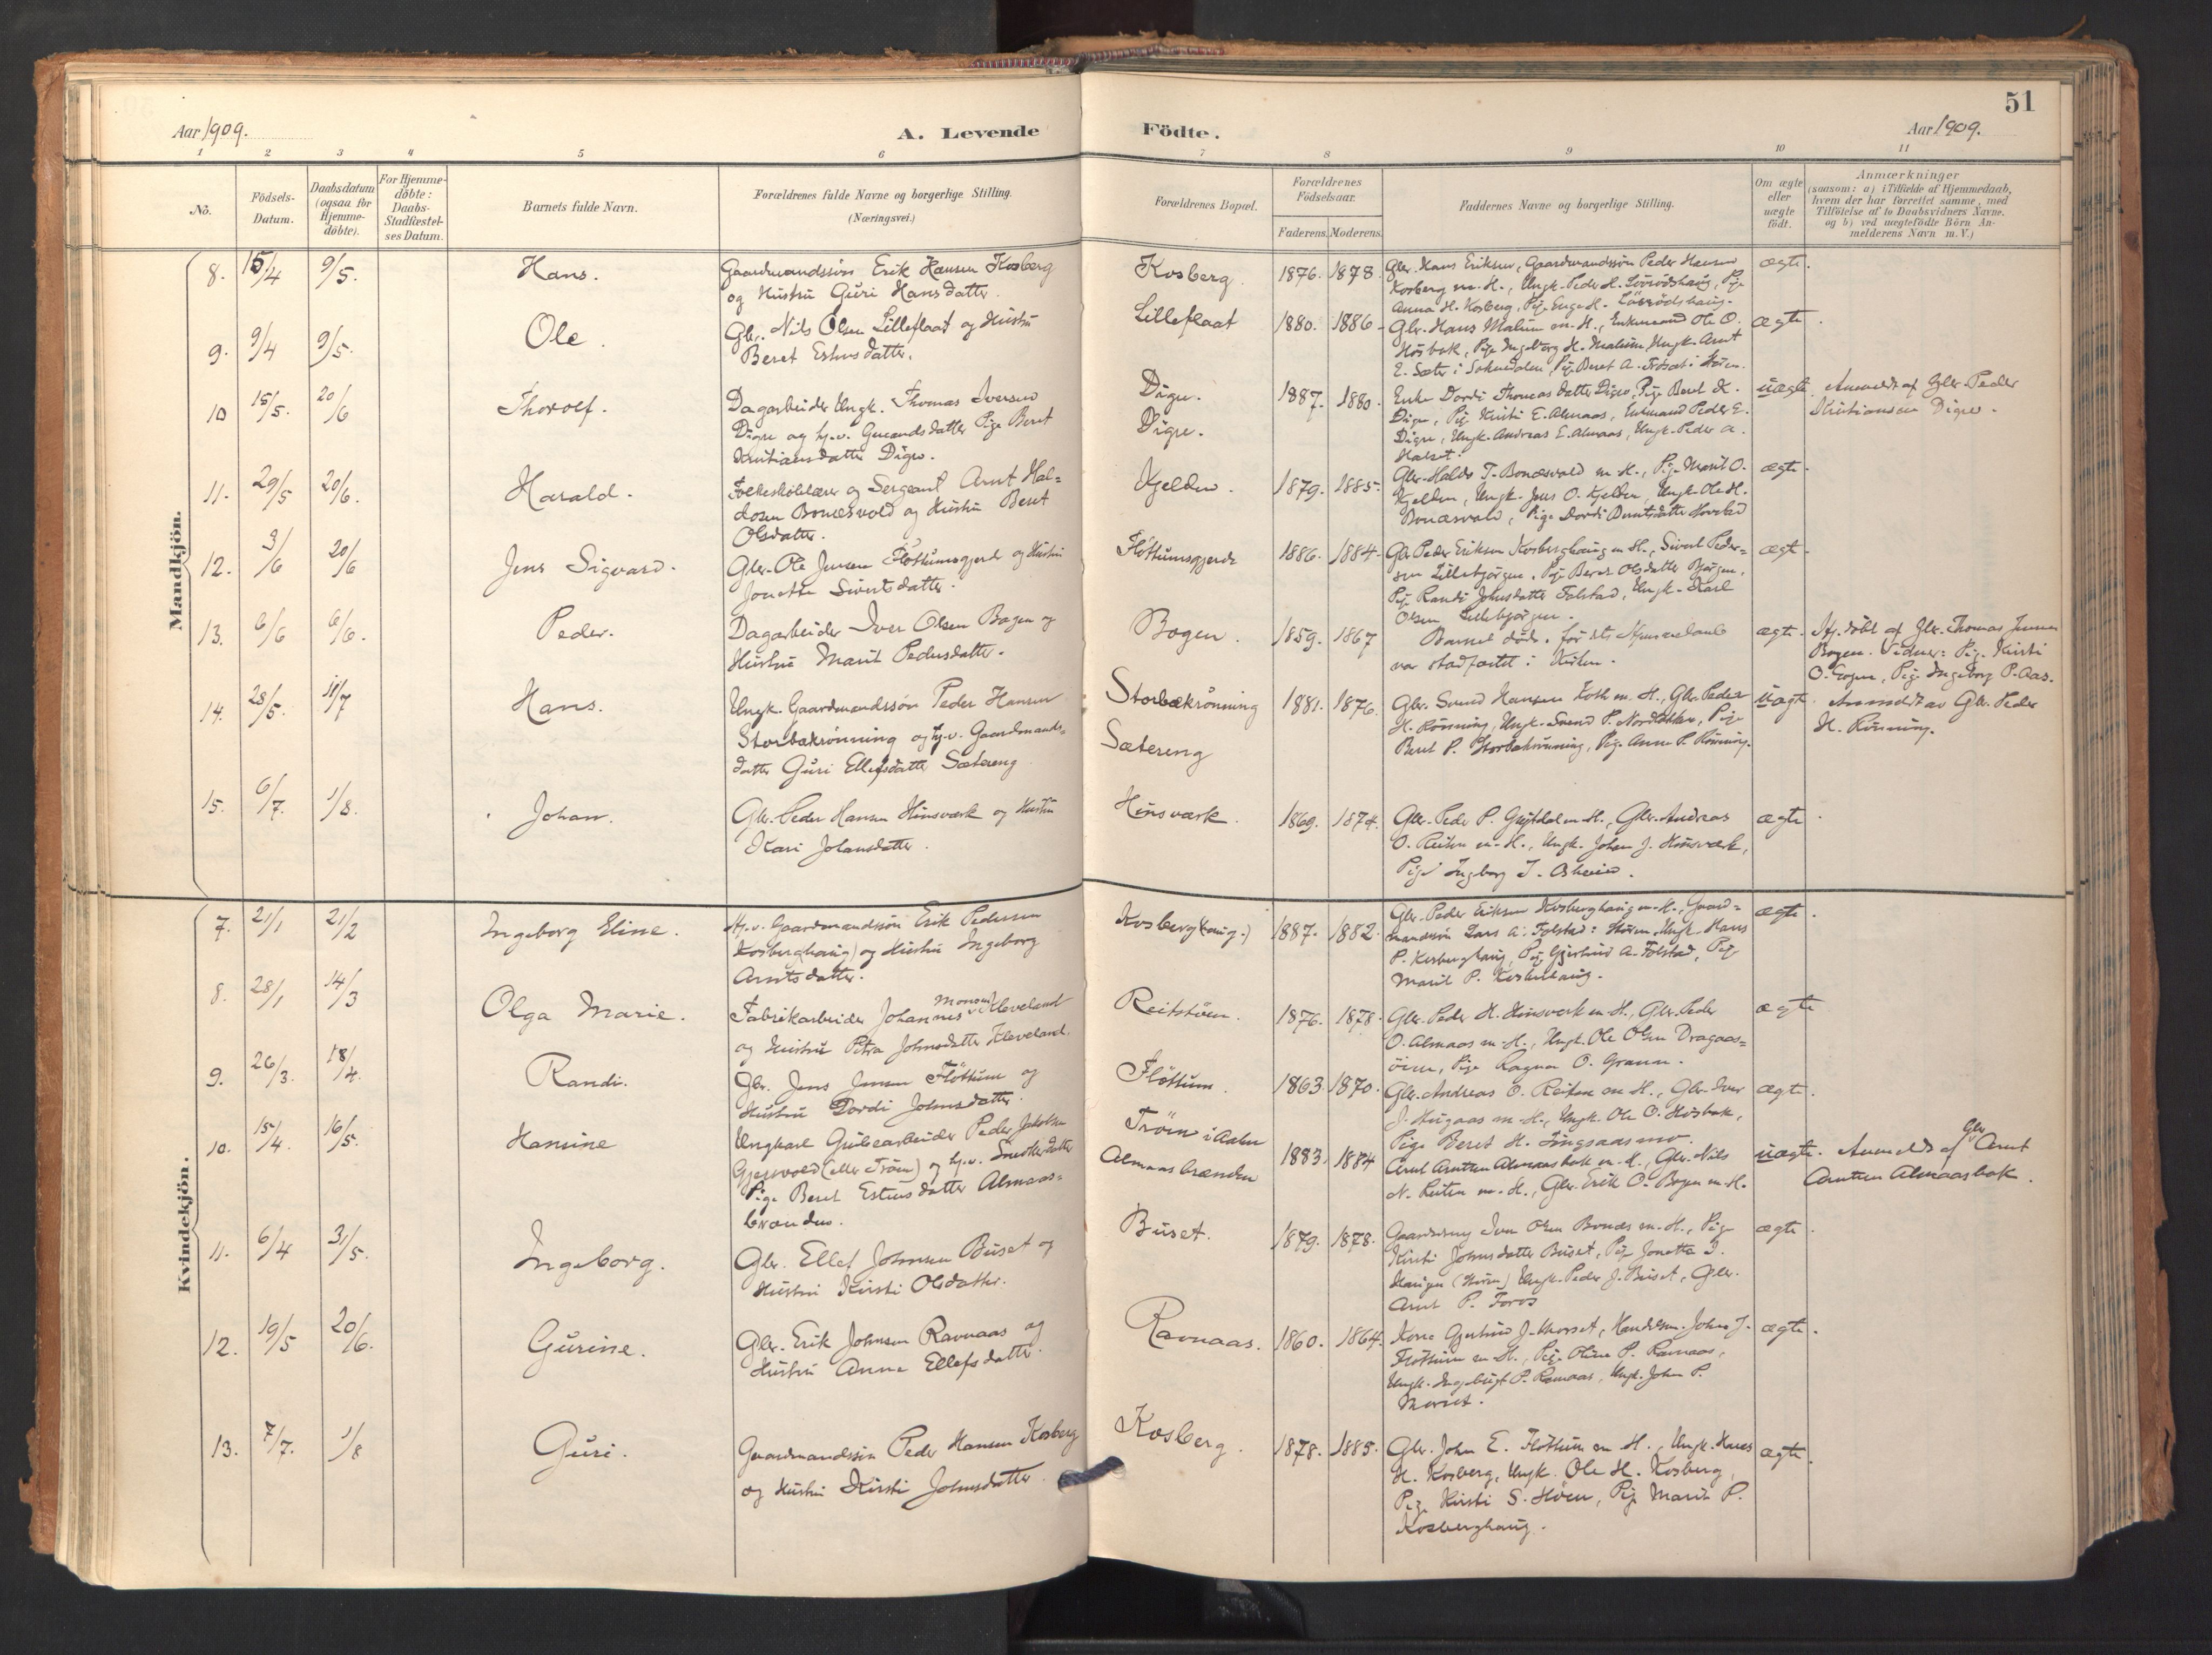 51
Aar 1909.
A. Levende
Födte.
Aar 1909.
1 2 3 4 5 6 7 8 9 10 11
No.
Födsels-
Datum.
Daabsdatum
(ogsaa for
Hjemme-
döbte).
For Hjemme-
döbte:
Daabs-
Stadfæstel-
ses Datum.
Barnets fulde Navn.
Forældrenes fulde Navne og borgerlige Stilling.
(Næringsvei.)
Forældrenes Bopæl.
Forældrenes
Födselsaar.
Faderens. Moderens.
Faddernes Navne og borgerlige Stilling.
Om ægte
eller
uægte
födt.
Anmærkninger
(saasom: a) i Tilfælde af Hjemmedaab,
hvem der har forrettet samme, med
Tilföielse af to Daabsvidners Navne.
og b) ved uægtefödte Börn An-
melderens Navn m. V.)
Mandkjön.
8. 15/4 9/5. Hans.
Gaardmandssön Erik Hansen Kosberg
og Hustru Guri Hansdatter.
Kosberg 1876. 1878.
Gbr. Hans Eriksen, Gaardmandssön Peder Hansen
Kosberg m. H., Ungk. Peder H. Pige
Anna H. Kosberg, Pige Enge H.
ægte.
9. 9/4 9/5. Ole.
Gbr. Nils Olsen Lilleflaat og Hustru
Beret Estensdatter.
Lilleflaat 1880. 1886
Gbr. Hans Malum m. H., Enkemand Ole O.
Hösbak, Pige Ingeborg H. Malum, Ungk. Arnt
E. Sæter i Soknedalen, Pige Beret A. i Stören.
ægte.
10 15/5. 20/6 Thorolf.
Dagarbeider Ungk. Thomas Iversen
Digre og hj.v. Gmands datter Pige Beret
Kristiansdatter Digre.
Digre.
Digre.
1887. 1880.
Enke Dordi Thomasdatter Digre, Pige Beret K.
Digre, Pige Kirsti E. Almaas, Enkmand Peder E.
Digre, Ungk. Andreas E. Almaas, Ungk. Peder A.
Halset.
uægte. Anmeldt af Gbr. Peder
Kristiansen Digre.
11. 29/5 20/6. Harald.
Folkeskolelærer og Sergeant Arnt Hal-
dosen Bonæsvold og Hustru Beret
Olsdatter.
Kjelden. 1879. 1885.
Gbr. Haldo T. Bonæsvold m. H., Pige Marit O.
Kjelden, Ungk. Jens O. Kjelden, Ungk. Ole H.
Bonæsvold, Pige Dordi Berntsdatter Hovstad
ægte.
12. 3/6 20/6 Jens Sigvard.
Gbr. Ole Jensen Flöttumsgjerd og Hustru
Jonetta Sivertsdatter.
Flöttumsgjerde 1886. 1884.
Gbr. Peder Eriksen Kosberghaug m. H., Sivert Peder-
sen Lillebjörgen, Pige Beret Olsdatter Bjørgen,
Pige Randi Johnsdatter Folstad, Ungk. Karl
Olsen Lillebjörgen.
ægte.
13. 6/6 6/6. Peder.
Dagarbeider Iver Olsen Bogen og
Hustru Marit Pedersdatter.
Bogen. 1859. 1867
Barnet döde för dets Hjemmedaab
var stadfæstet i Kirken.
ægte. Hj.döbt af Gbr. Thomas Jensen
Bogen. Vidner: Pige Kirsti
O. Bogen, Pige Ingeborg P. Aas.
14. 28/5. 11/7 Hans.
Ungk. Gaardmandssön Peder Hansen
Storbækrönning og hj.v. Gaardmands-
datter Guri Ellefsdatter Sætereng
Storbækrönning
Sætereng
1881. 1876.
Gbr. Svend Hansen Koth m. H., Gbr. Peder
H. Rönning, Ungk. Svend P. Pige
Beret P. Storbækrönning, Pige Anne P. Rönning.
uægte. Anmeldt av Gbr. Peder
H. Rönning.
15. 6/7. 1/8. Johan.
Gbr. Peder Hansen Hinsværk og Hustru
Kari Johansdatter.
Hinsværk. 1869. 1874.
Gbr. Peder P. m. H., Gbr. Andreas
O. Reiten m. H., Ungk. Johan J. Hinsværk,
Pige Ingborg J.
ægte.
Kvindekjön.
7. 21/1 21/2 Ingeborg Eline.
Hj.v. Gaardmandssön Erik Pedersen
Kosberg(haug) og Hustru Ingeborg
Arntsdatter.
Kosberg(haug.) 1887. 1882.
Gbr. Peder Eriksen Kosberghaug m. H., Gaard-
mandssön Lars A. Folstad i Stören, Ungk. Hans
P. Kosberghaug, Pige Gjertrud A. Folstad, Pige
Marit P. Kosberghaug.
ægte.
8. 28/1 14/3 Olga Marie.
Fabrikarbeider Johannes Monsen Kleveland
og Hustru Petra Johnsdatter Kleveland.
Reitstöen. 1876. 1878.
Gbr. Peder H. Hinsværk m. H., Gbr. Peder
O. Almaas m. H., Ungk. Ole Olsen Dragaas-
öien, Pige Ragna O. Gramm.
ægte
9. 26/3. 18/4. Randi.
Gbr. Jens Jensen Flöttum og
Hustru Dordi Johnsdatter.
Flöttum. 1863. 1870.
Gbr. Andreas O. Reiten m. H., Gbr. Iver
J. Hugaas m. H., Ungk. Ole O. Hösbak,
Pige Beret H. Singsaasmo.
ægte.
10. 15/4. 16/5. Hansine
Ungkarl Grubearbeider Peder Jakobsen
Gjersvold (eller Tröen) og hj.v. datter
Pige Beret Estensdatter Almaas-
brænden.
Tröen i Aalen
Almaasbrænden
1883. 1884
Arnt Arntsen Almaasbak m. H., Gbr. Nils
N. Reiten m. H., Gbr. Erik O. Bogen m. H.
uægte. Anmeldt af Gbr. Arnt
Arntsen Almaasbak.
11. 6/4 31/5. Ingeborg.
Gbr. Ellef Johnsen Buset og
Hustru Kirsti Olsdatter.
Buset. 1879. 1878.
Iver Olsen Bonæs m. H., Pige
Kirsti Johnsdatter Buset, Pige Jonetta I.
Haugen (Stören) Ungk. Peder J. Buset, Gbr.
Arnt P. Foros
ægte.
12. 19/5 20/6. Gurine.
Gbr. Erik Johnsen Ravnaas og
Hustru Anne Ellefsdatter.
Ravnaas. 1860. 1864.
Kone Gjertrud J. Morset, Handelsm. John J.
Flöttum m. H., Pige Oline P. Ravnaas,
Ungk. Ingebrigt P. Ravnaas, Ungk. John P.
Morset.
ægte.
13. 7/7. 1/8 Guri.
Gaardmandssön Peder Hansen Kosberg
og Hustru Kirsti Johnsdatter.
Kosberg. 1878. 1885.
Gbr. John E. Flöttum m. H., Ungk. Hans
H. Kosberg, Ungk. Ole H. Kosberg,
Pige Kirsti S. Höen, Pige Marit P.
Kosberghaug.
ægte.